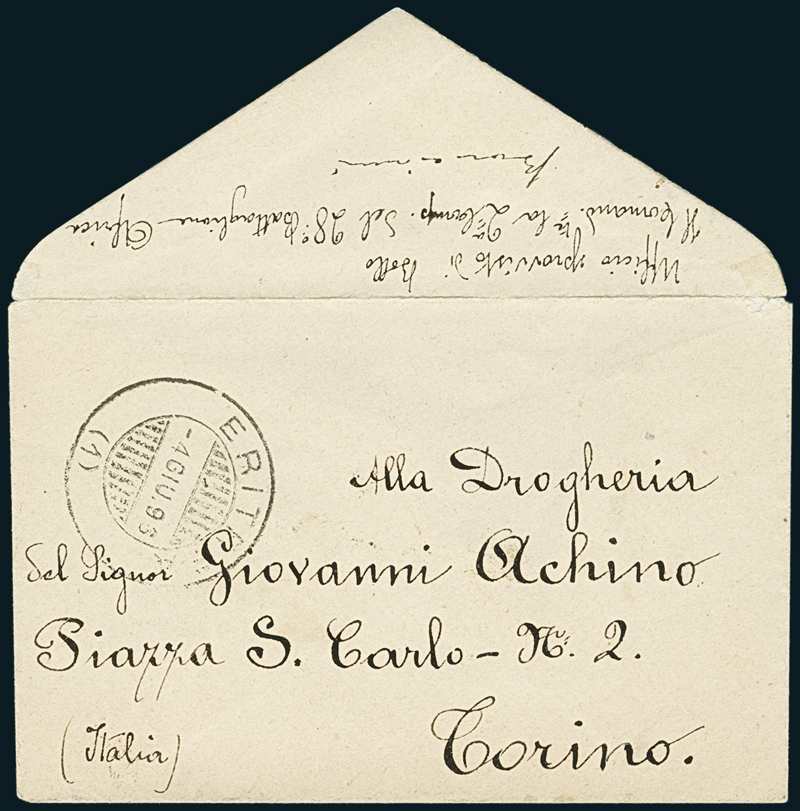 Ufficio sprovvisto di Bollo
Il Comand.te la 2a Comp. del 28° Battaglione Africa
ERIT
- 4 GIU. 96
(1)
Alla Drogheria
del Signor Giovanni Achino
Piazza S. Carlo - N.º 2.
(Italia) Torino.